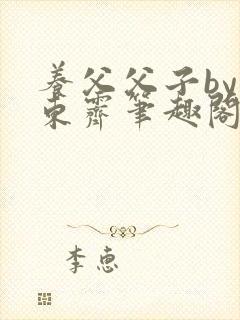 养父父子by
东霽笔趣阁
李惠